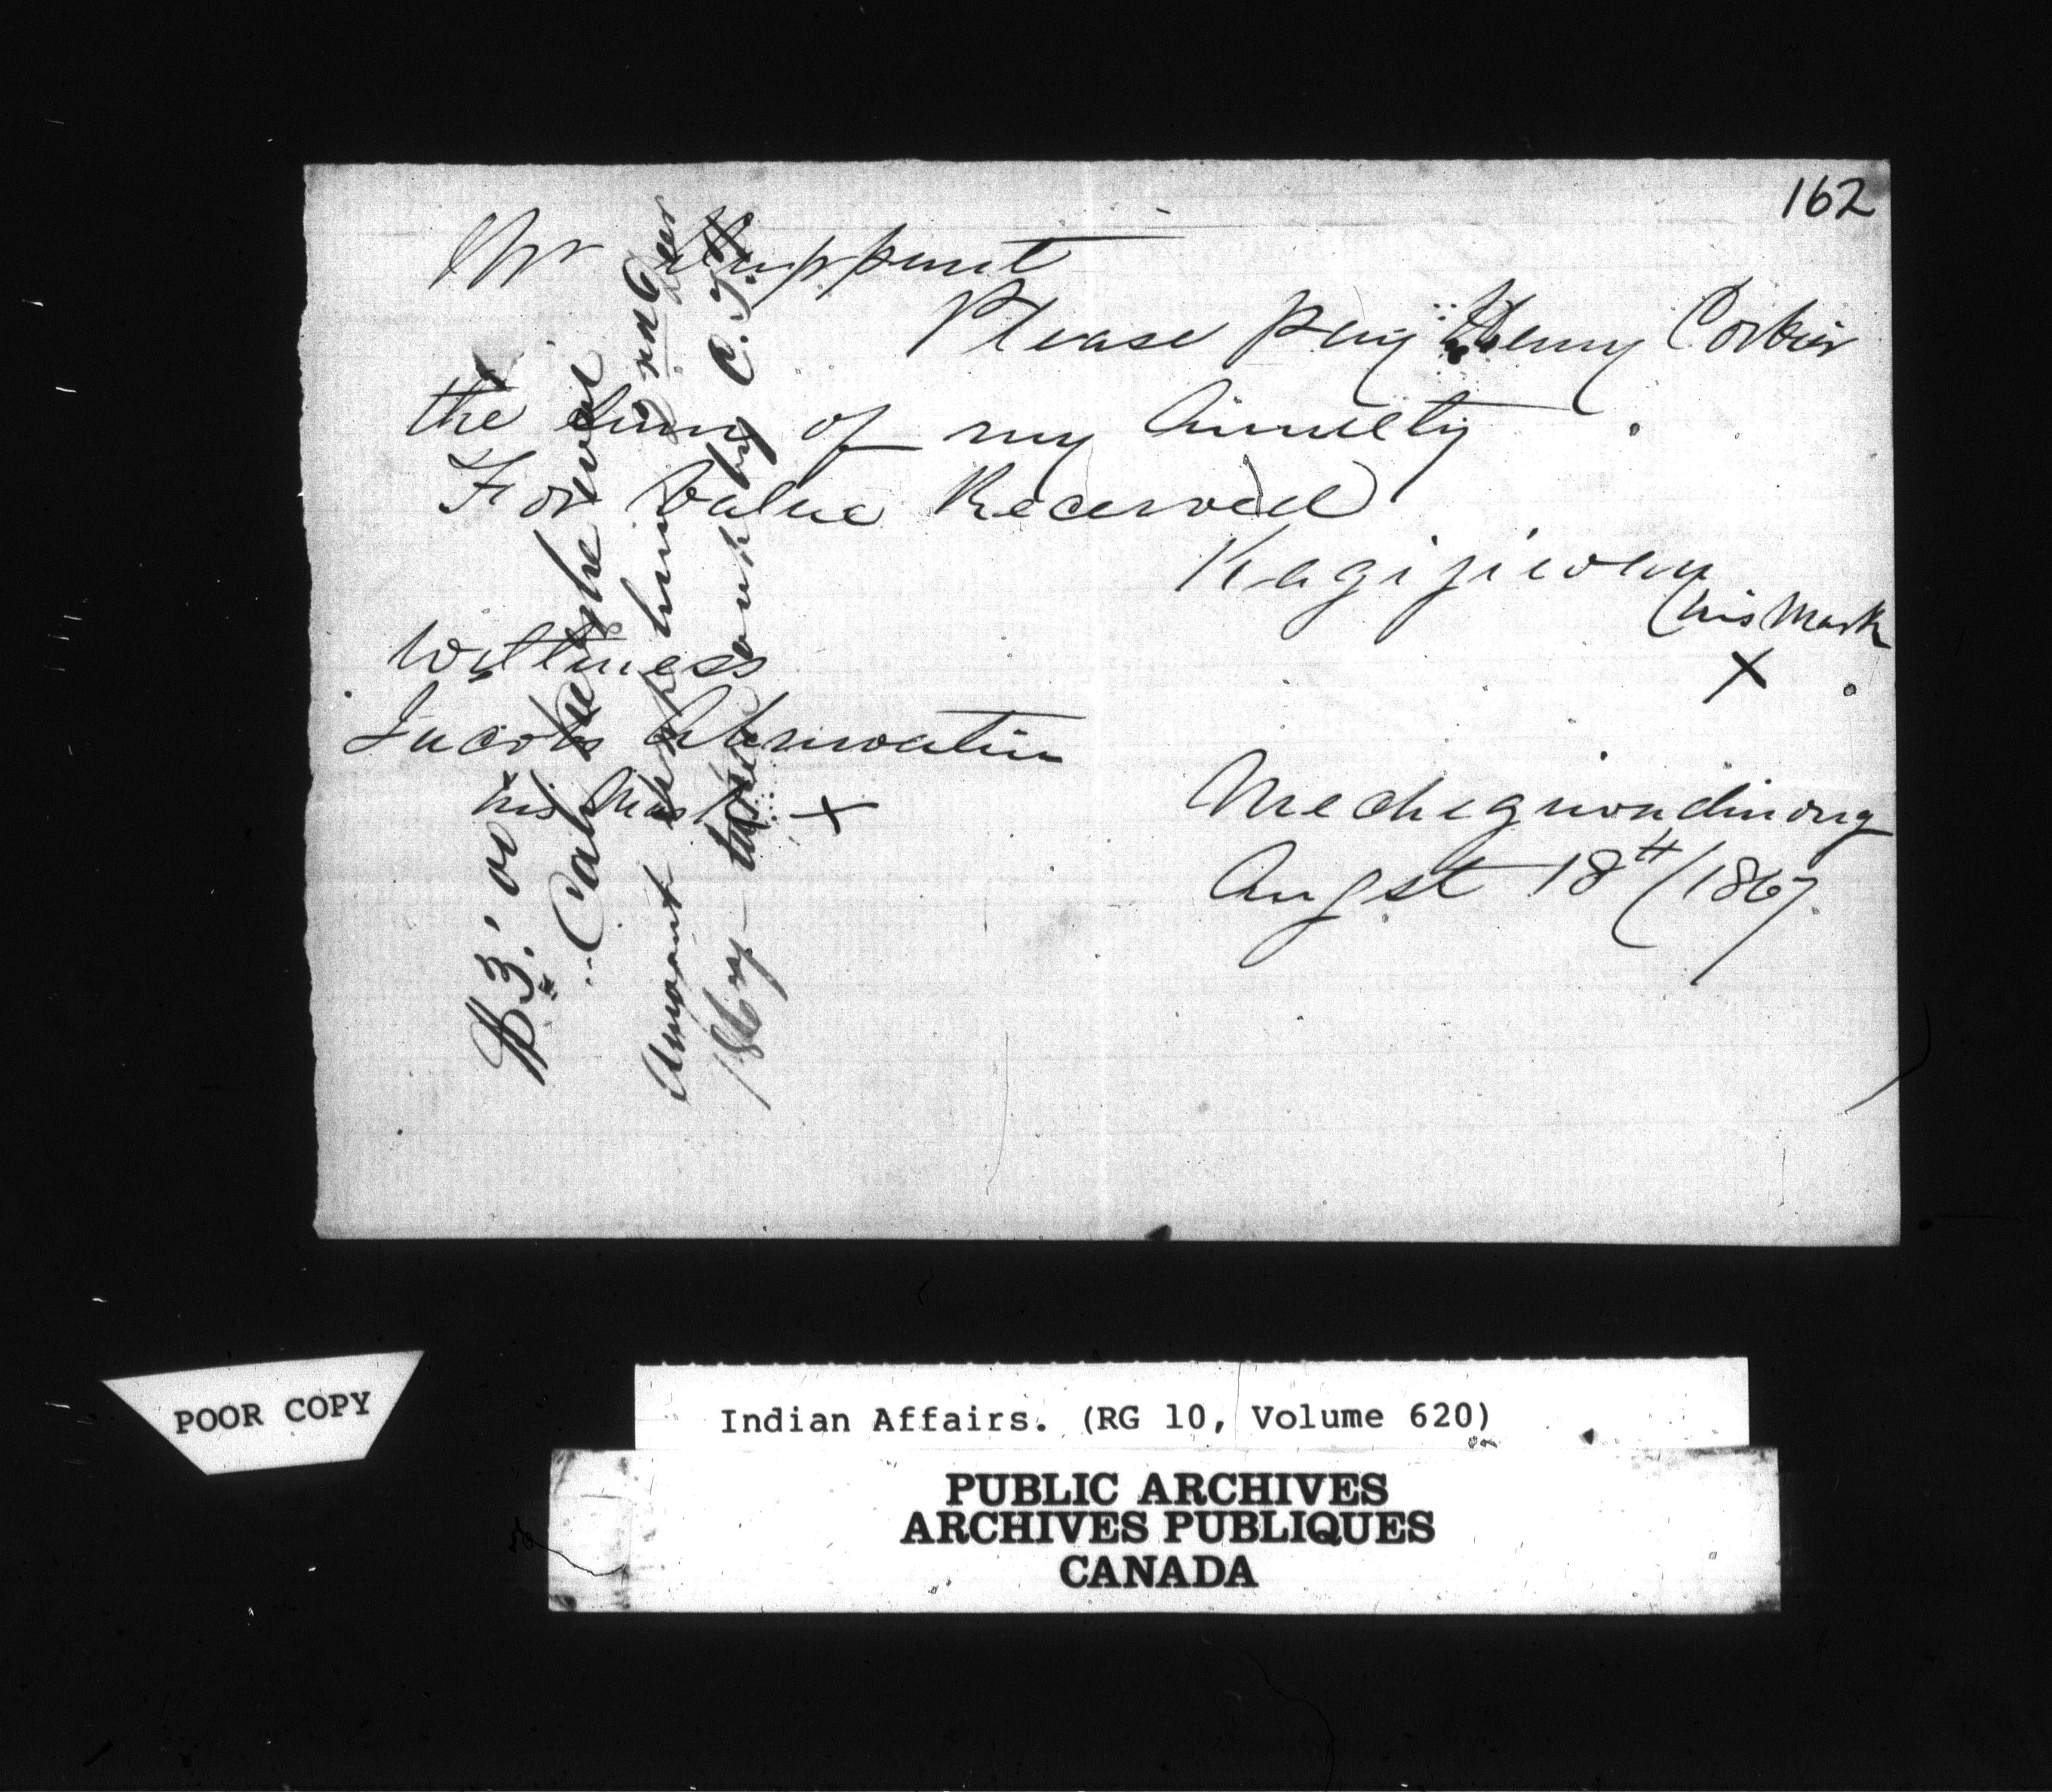 162
Mr Duppunt
Please pay Henry Corbier
the Sum of my Annuety
For Value Received
Kagijiwan
his Mark
X
Wittness
Jacob Abinwatin
his Mark X
Mechegwondinong
Augst 18th / 1867
$3.00
Amount him
1867 by C. T. D
POOR COPY
Indian Affairs. (RG 10, Volume 620)
PUBLIC ARCHIVES
ARCHIVES PUBLIQUES
CANADA